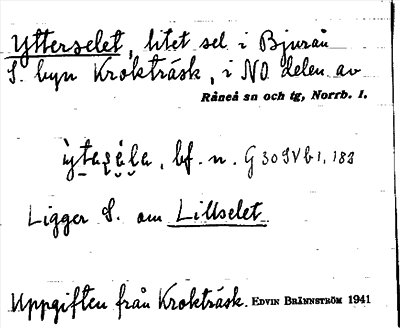 Ytterselet, litet sel i Bjurån
S. byn Krokträsk, i NO delen av
Råneå sn och tg, Norrb. l.
ỳtaṣéla, bf. n. G 30 SV b 1, 183
Ligger S. om Lillselet
Uppgiften från Krokträsk. EDVIN BRÄNNSTRÖM 1941